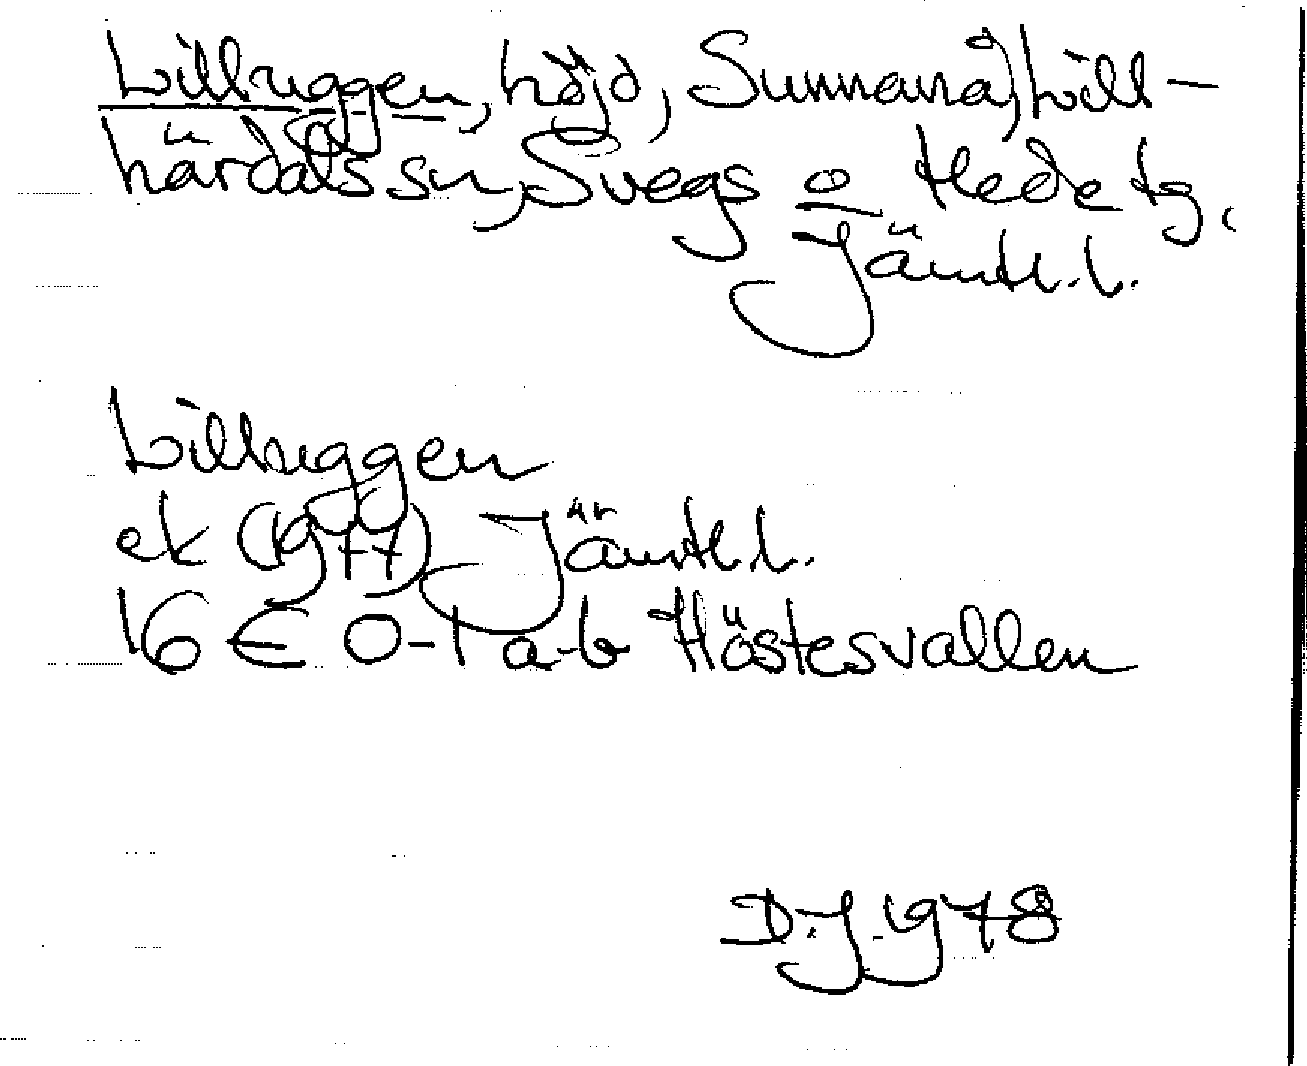 Lillruggen, höjd, Sunnanå, Lill-
härdals sn, Svegs o Hede tg,
Jämtl.l.
Lillruggen
ek (1977) Jämtl.l.
16 E 0-1 a-b Höstesvallen
D.J. 1978